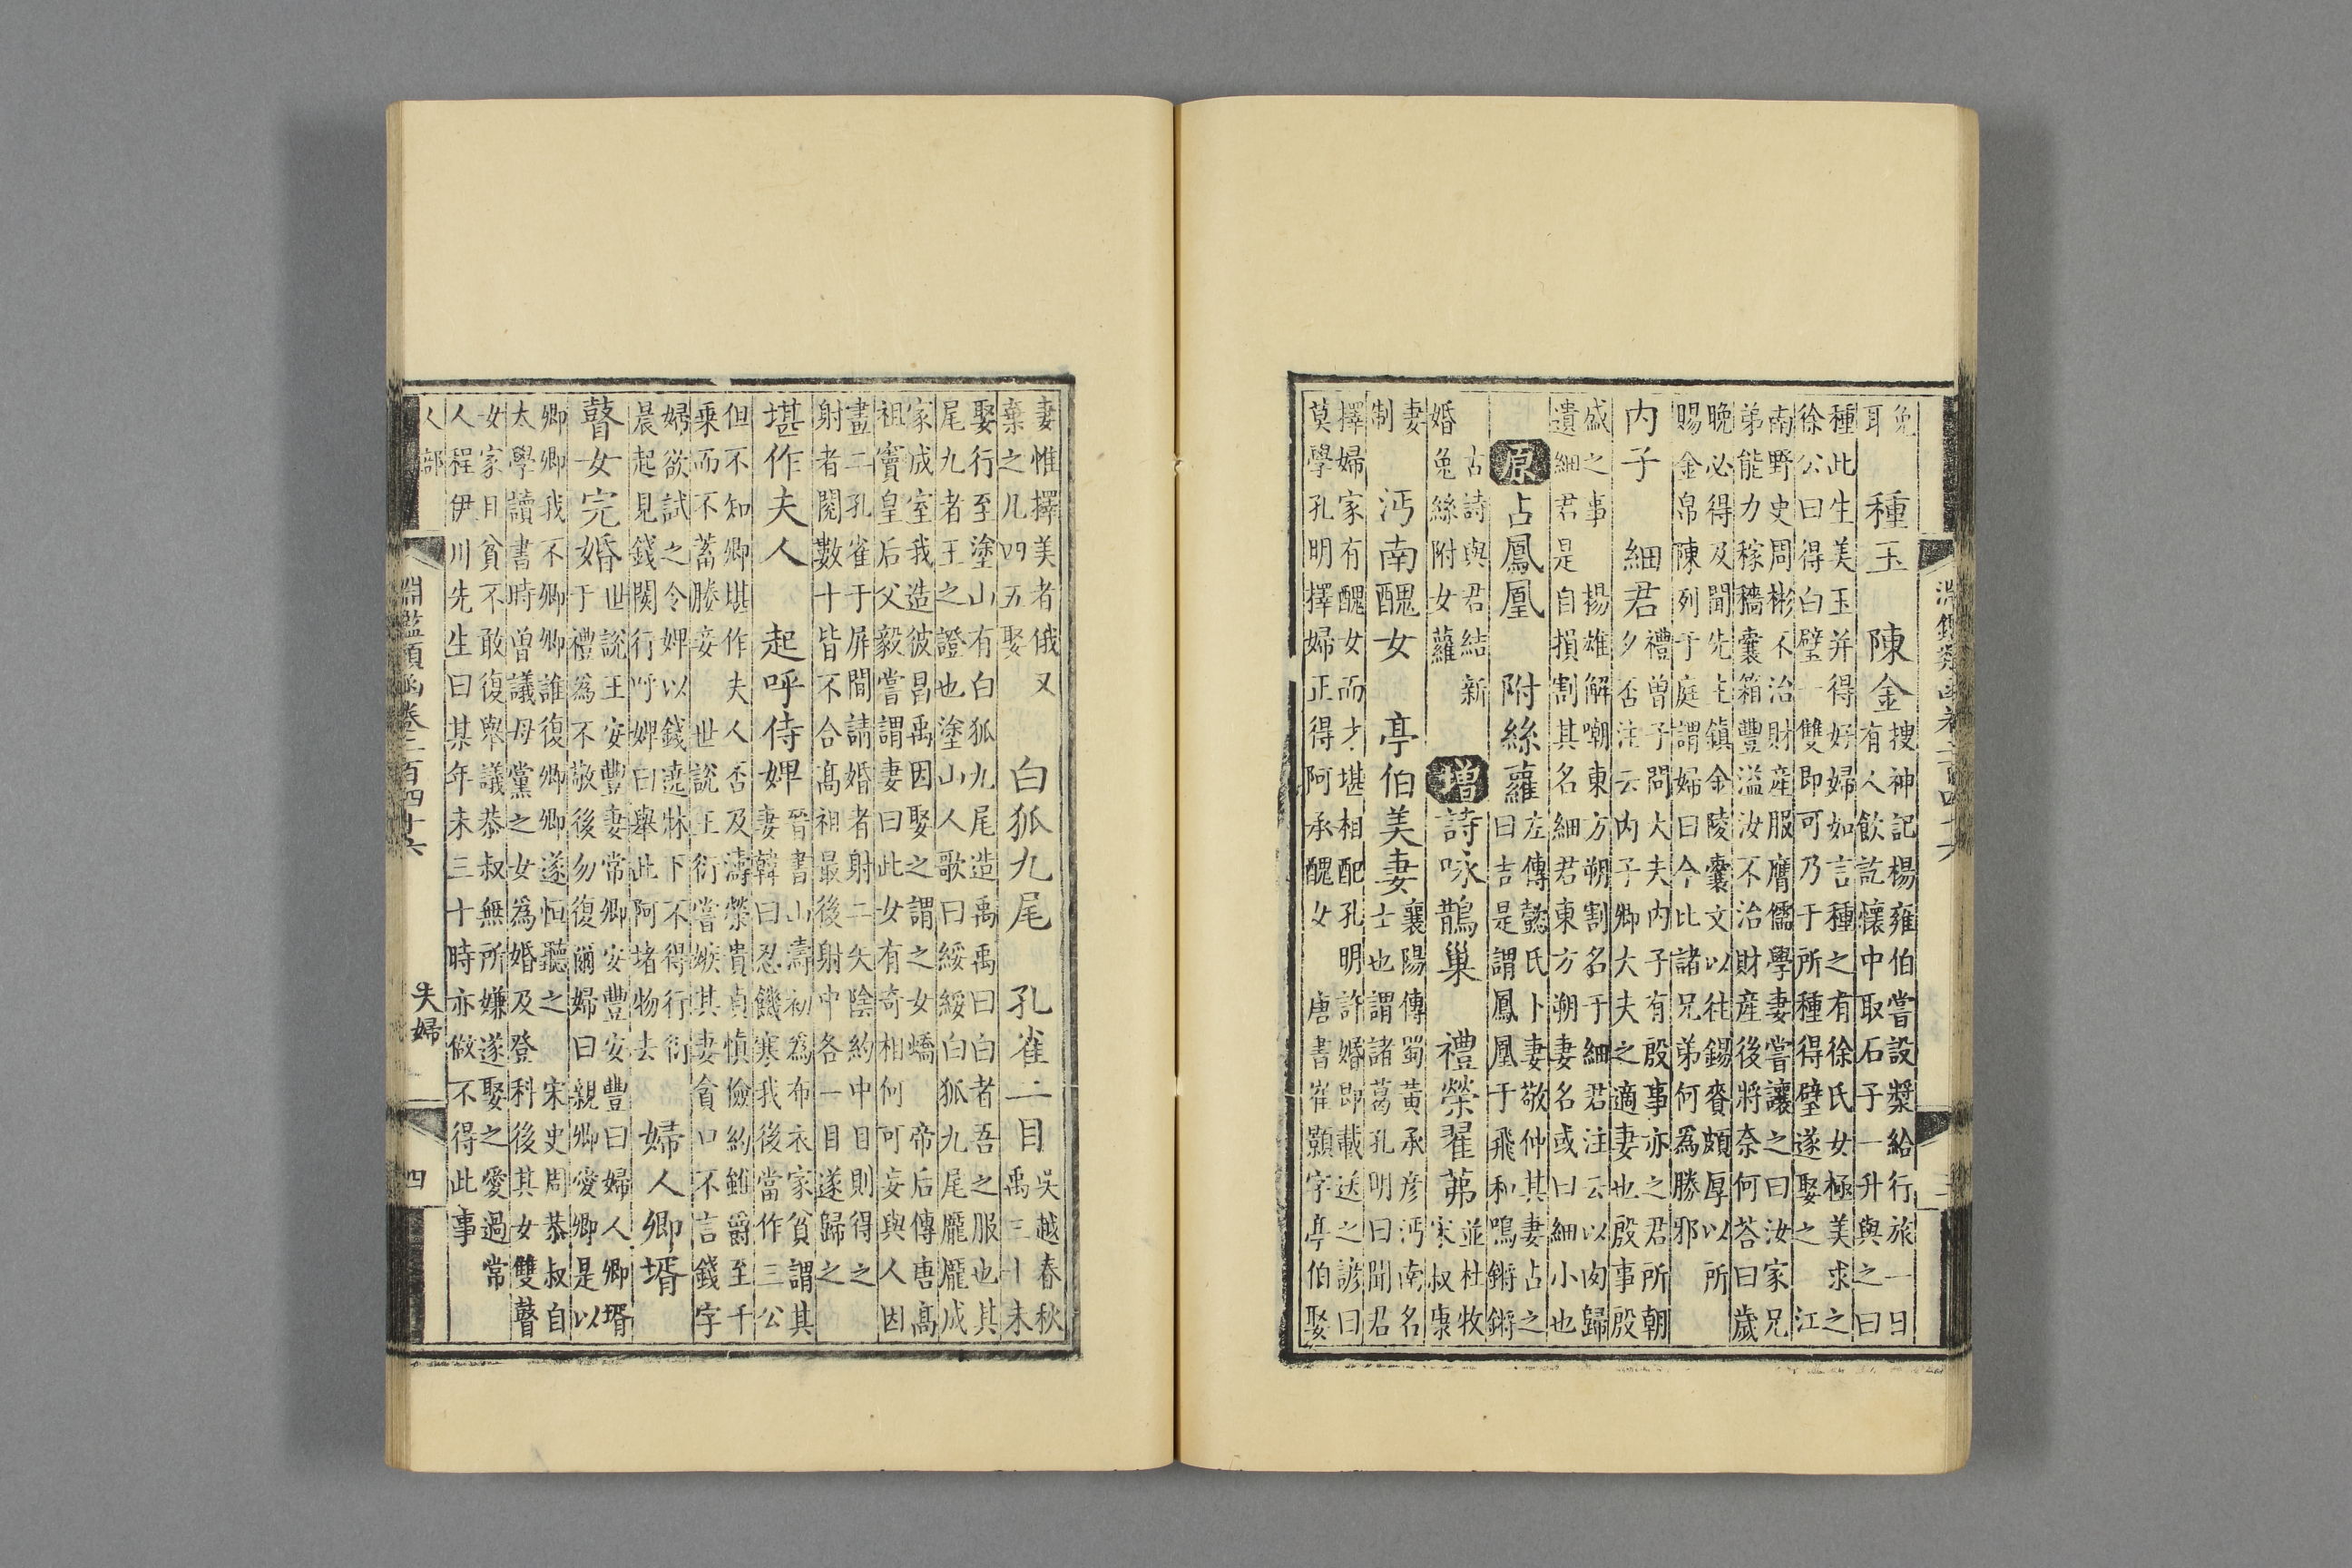 淵鑑類函卷二百四十六　三
兔
耳
種玉　陳金
搜神記楊雍伯嘗設漿給行旅一日
有人飲訖懷中取石子一升與之曰
種此生美玉并得好婦如言種之有徐氏女極美求之
徐公曰得白璧一雙即可乃于所種得璧遂娶之　江
南野史周彬不治財產服膺儒學妻嘗讓之曰汝家兄
弟能力稼穡囊箱豐溢汝不治財產後將奈何荅曰歲
晚必得及聞先主鎮金陵囊文以往錫賚頗厚以所
賜金帛陳列于庭謂婦曰今比諸兄弟何為勝邪
內子　細君
禮曾子問大夫內子有殷事亦之君所朝
夕否注云內子卿大夫之適妻也殷事殷
盛之事　揚雄解嘲東方朔割名于細君注云以肉歸
遺細君是自損割其名細君東方朔妻名或曰細小也
原占鳳凰　附絲蘿
左傳懿氏卜妻敬仲其妻占之
曰吉是謂鳳凰于飛和鳴鏘鏘
古詩與君結新
婚兔絲附女蘿
增詩咏鵲巢　禮榮翟茀
並杜牧
宋叔康
妻
制
沔南醜女　亭伯美妻
襄陽傳蜀黃承彥沔南名
士也謂諸葛孔明曰聞君
擇婦家有醜女而才堪相配孔明許婚即載送之諺曰
莫學孔明擇婦正得阿承醜女　唐書崔顥字亭伯娶
妻惟擇美者俄又
棄之凡四五娶
白狐九尾　孔雀二目
吳越春秋
禹三十未
娶行至塗山有白狐九尾造禹禹曰白者吾之服也其
尾九者王之證也塗山人歌曰綏綏白狐九尾龐龐成
家成室我造彼昌禹因娶之謂之女嬌　帝后傳唐高
祖竇皇后父毅嘗謂妻曰此女有奇相何可妄與人因
畫二孔雀于屏間請婚者射二矢陰約中目則得之
射者閱數十皆不合高祖最後射中各一目遂歸之
堪作夫人　起呼侍婢
晉書山濤初為布衣家貧謂其
妻韓曰忍饑寒我後當作三公
但不知卿堪作夫人否及濤榮貴貞慎儉約雖爵至千
乘而不蓄媵妾　世說王衍嘗嫉其妻貪口不言錢字
婦欲試之令婢以錢遶牀下不得行衍
晨起見錢閡行呼婢曰舉此阿堵物去
婦人卿壻
瞽女完婚
世說王安豐妻常卿安豐安豐曰婦人卿壻
于禮為不敬後勿復爾婦曰親卿愛卿是以
卿卿我不卿卿誰復卿卿遂恒聽之　宋史周恭叔自
太學讀書時曾議母黨之女為婚及登科後其女雙瞽
女家且貧不敢復舉議恭叔無所嫌遂娶之愛過常
人程伊川先生曰某年未三十時亦做不得此事
人部　淵鑑類函卷二百四十六　夫婦　四